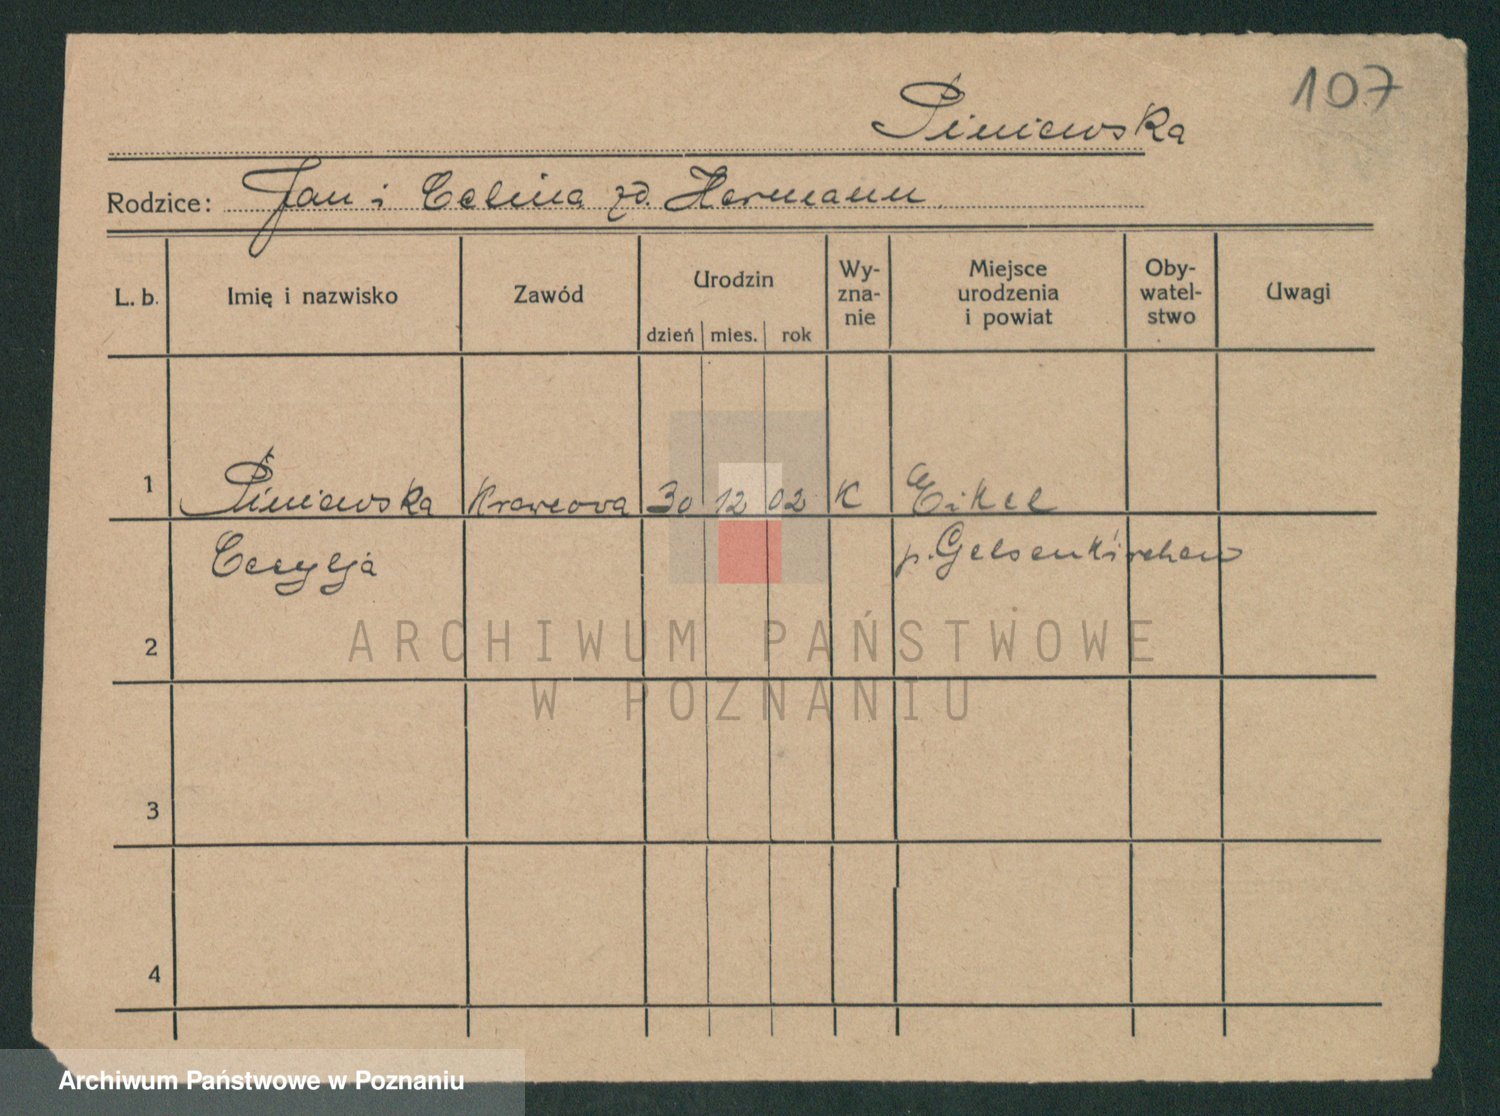 107
Śmiewska
Rodzice: Jan i Celina zd. Hermann.
L. b. Imię i nazwisko Zawód Urodzin dzień mies. rok Wy-zna-nie Miejsce urodzenia i powiat Oby-watel-stwo Uwagi
1 Śmiewska Krawcowa 30 12 02 K Eikel
Cecylja p. Gelsenkirchen
2
ARCHIWUM PAŃSTWOWE
W POZNANIU
3
4
Archiwum Państwowe w Poznaniu